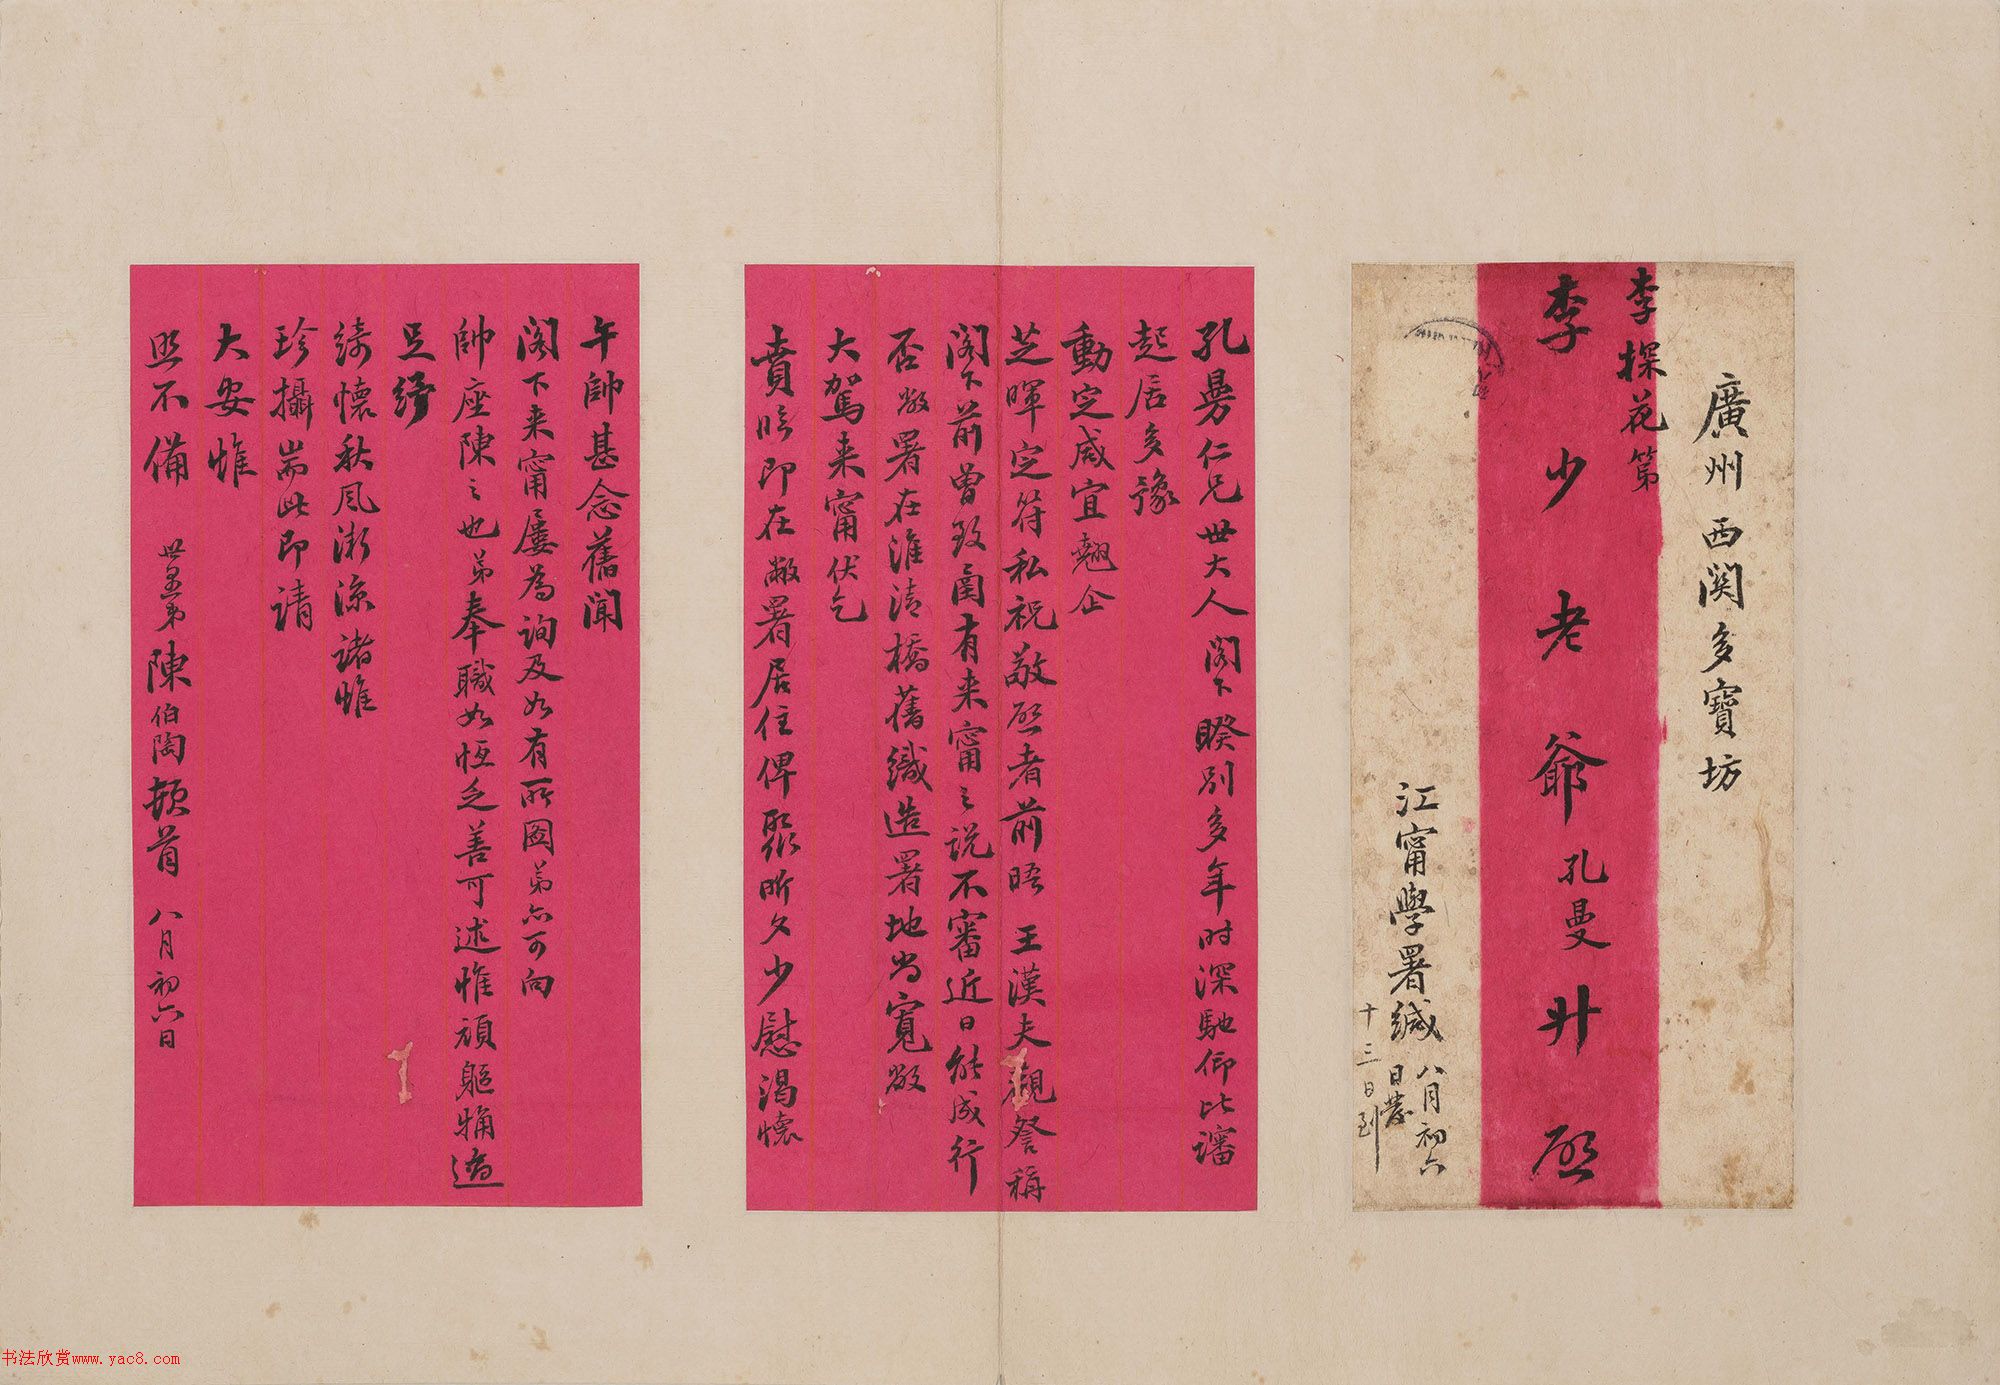 廣州西関多寶坊
李探花第
李少老爺孔曼升啟
江甯學署緘
八月初六
日發
十三日到
孔曼仁兄世大人閣下睽別多年時深馳仰比審
起居多豫
動定咸宜翹企
芝暉定符私祝敬啟者前晤王漢夫觀詧稱
閣下前曾致函有来甯之說不審近日能成行
否敝署在淮清橋舊織造署地尚寬敞
大駕来甯伏乞
賁臨即在敝署居住俾聚昕夕少慰渴懷
午帥甚念舊聞
閣下来甯屢為詢及如有所圖弟亦可向
帥座陳之也弟奉職如恆乏善可述惟頑軀粗適
足紓
綺懷秋風漸涼諸惟
珍攝耑此即請
大安惟
照不備
世愚弟陳伯陶頓首八月初六日
书法欣赏www.yac8.com